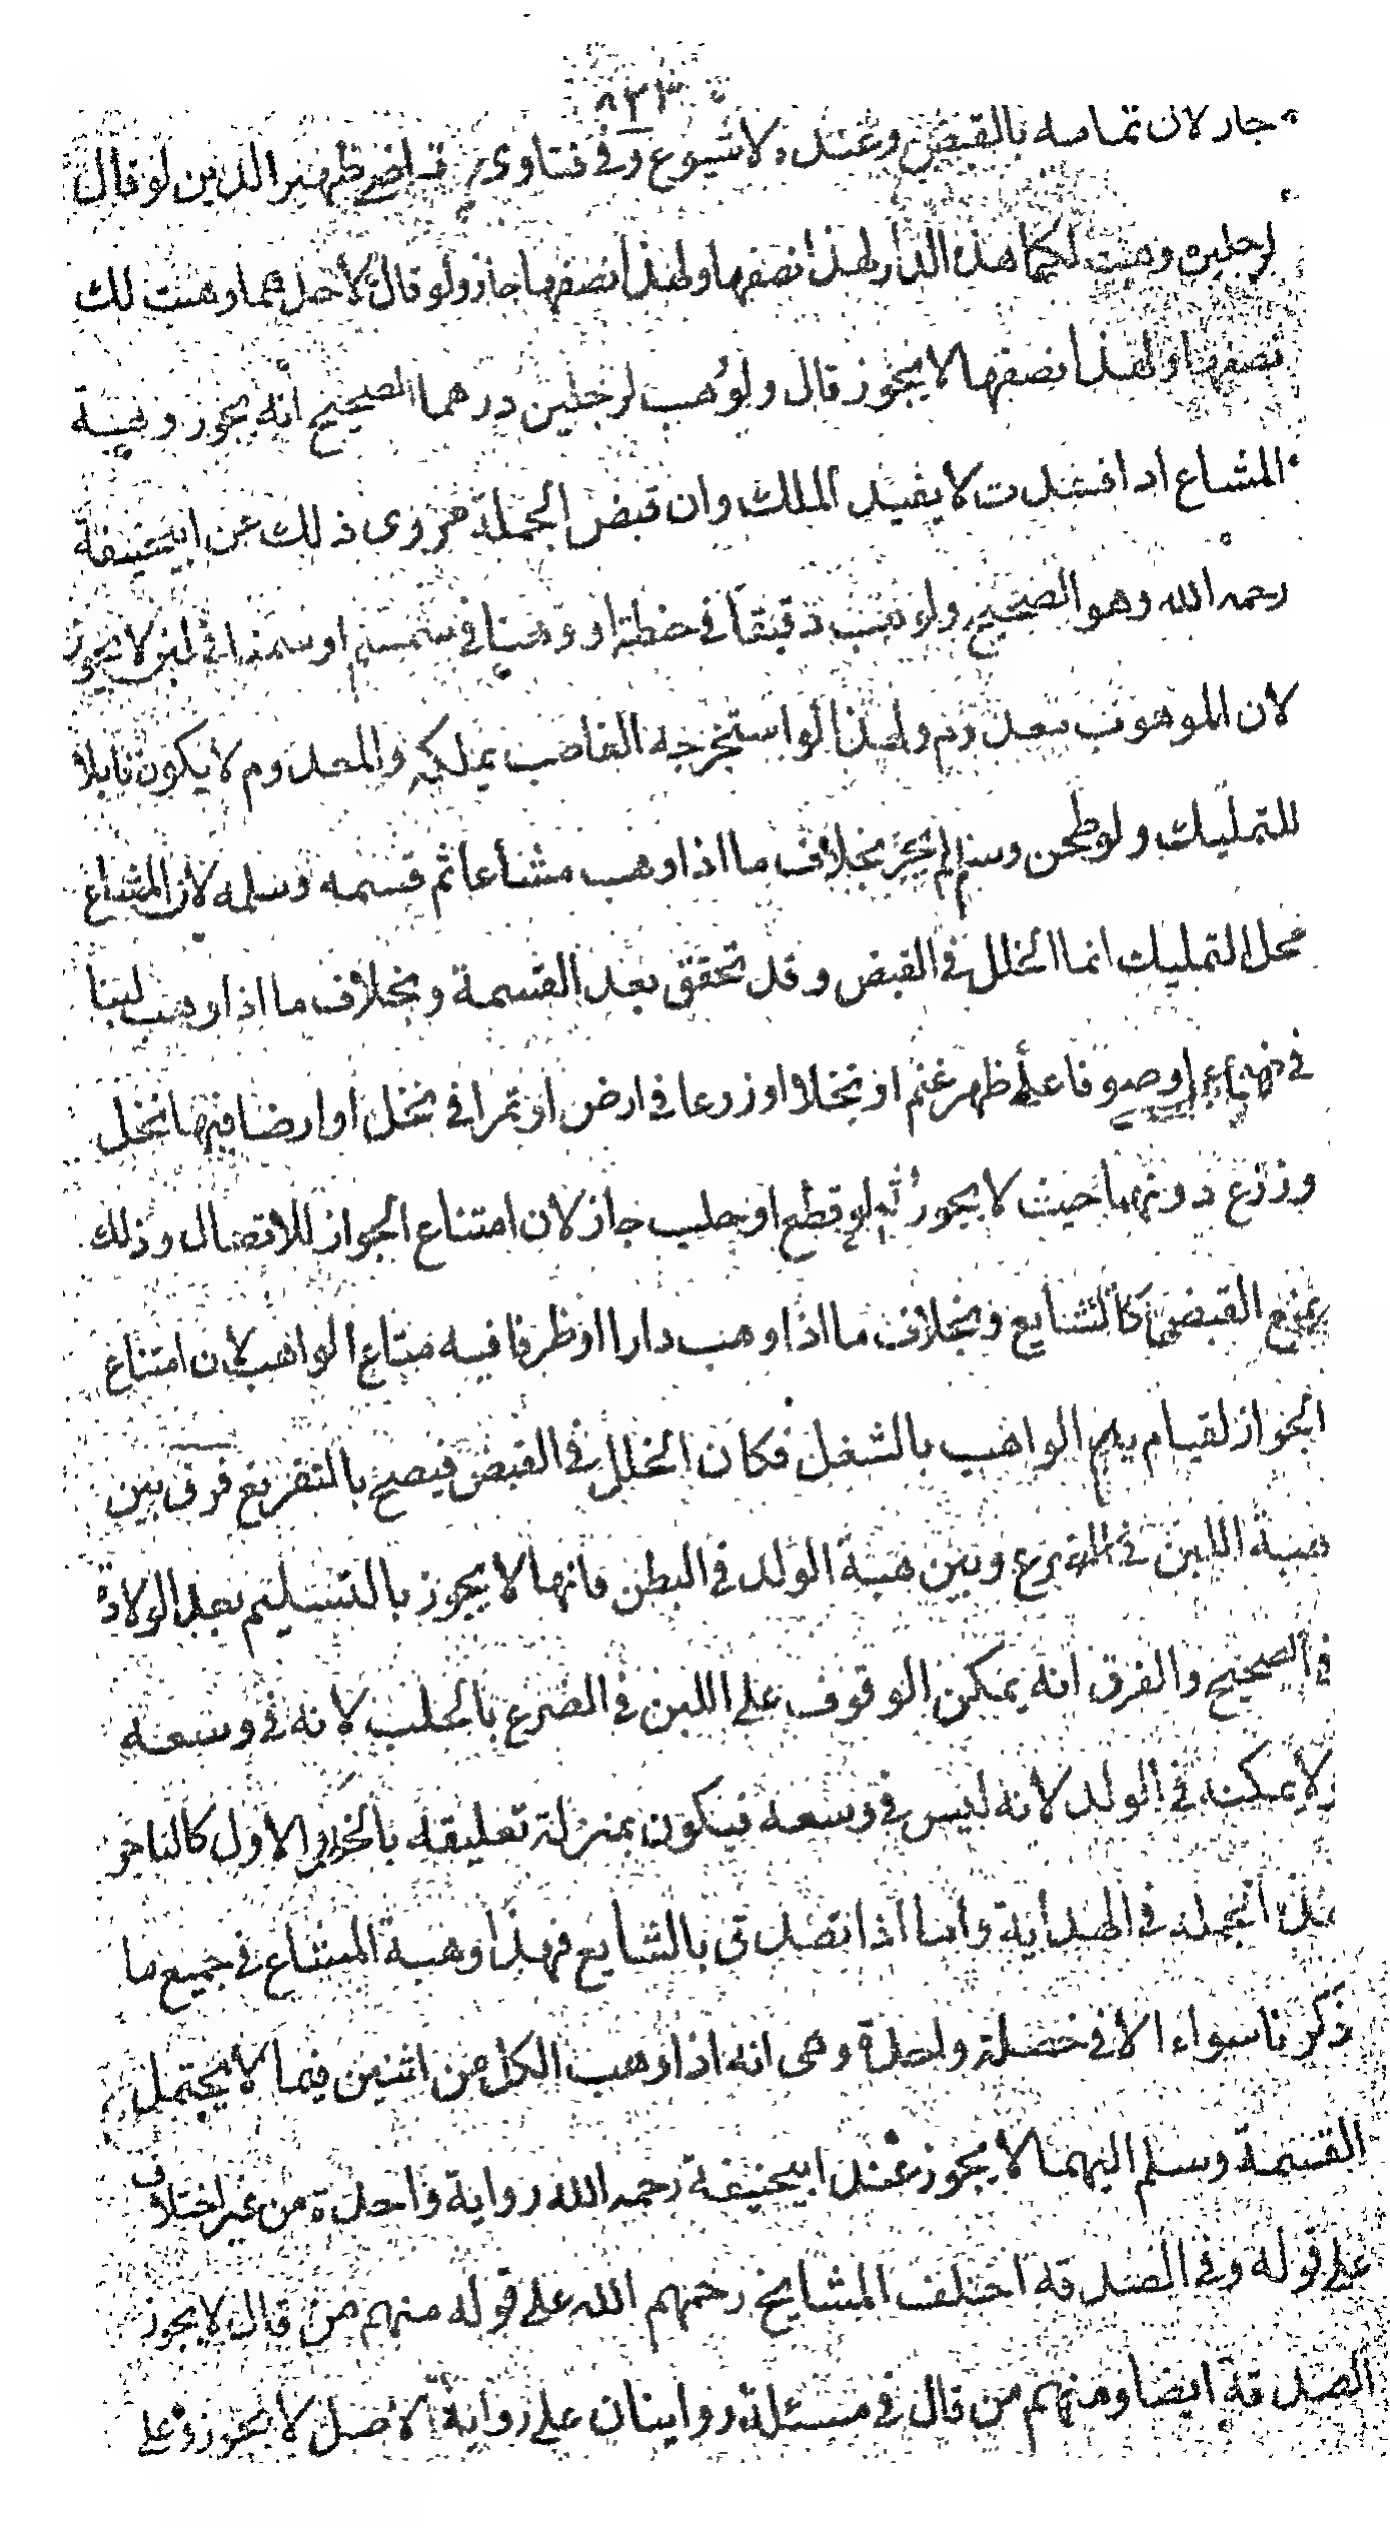 ٨٣٣
جاز لان تمامه بالقبض وعنده لا شيوع وفى فتاوى قاضى ظهير الدين لو قال
لرجلين وهبت لكما هذه الدار لهذا نصفها ولهذا نصفها جاز ولو قال لأحدهما وهبت لك
نصفها ولهذا نصفها لا يجوز قال ولو وهب لرجلين درهما الصحيح أنه يجوز وهبة
المشاع اذا فسدت لا يفيد الملك وان قبض الجملة مروى ذلك عن ابيحنيفة
رحمه الله وهو الصحيح ولو وهب دقيقا فى حنطة او دهنا فى سمسم او سمنا فى لبن لا يجوز
لان الموهوب معدوم ولهذا لو استخرجه الغاصب يملكه والمعدوم لا يكون قابلا
للتمليك ولو طحن وسلم لم يجز بخلاف ما اذا وهب مشاعا ثم قسمه وسلمه لان المشاع
محل التمليك انما الخلل فى القبض وقد تحقق بعد القسمة وبخلاف ما اذا وهب لبنا
فى ضرع او صوفا على ظهر غنم او نخلا او زرعا فى ارض او تمرا فى نخل أو ارضا فيها نخل
وزرع دونهما حيث لا يجوز ثم لو قطع او حلب جاز لان امتناع الجواز للاتصال وذلك
يمنع القبض كالشايع وبخلاف ما اذا وهب دارا او ظرفا فيه متاع الواهب لان امتناع
الجواز لقيام يد الواهب بالشغل فكان الخلل فى القبض فيصح بالتفريغ فرق بين
هبة اللبن فى الضرع وبين هبة الولد فى البطن فانها لا يجوز بالتسليم بعد الولادة
فى الصحيح والفرق انه يمكن الوقوف على اللبن فى الضرع بالحلب لانه فى وسعه
ولا يمكنه فى الولد لانه ليس فى وسعه فيكون بمنزلة تعليقه بالخطر والاول كالتاجز
هذه الجملة فى الهداية واما اذا تصدق بالشايع فهذا وهبة المشاع فى جميع ما
ذكرنا سواء الا فى خصلة واحدة وهى انه اذا وهب الكل من اثنين فيما لا يحتمل
القسمة وسلم اليهما لا يجوز عند ابيحنيفة رحمه الله رواية واحدة من غير اختلاف
على قوله وفى الصدقة اختلف المشايخ رحمهم الله على قوله منهم من قال لا يجوز
الصدقة ايضا ومنهم من قال فى مسئلة روايتان على رواية الاصل لا يجوز وعلى